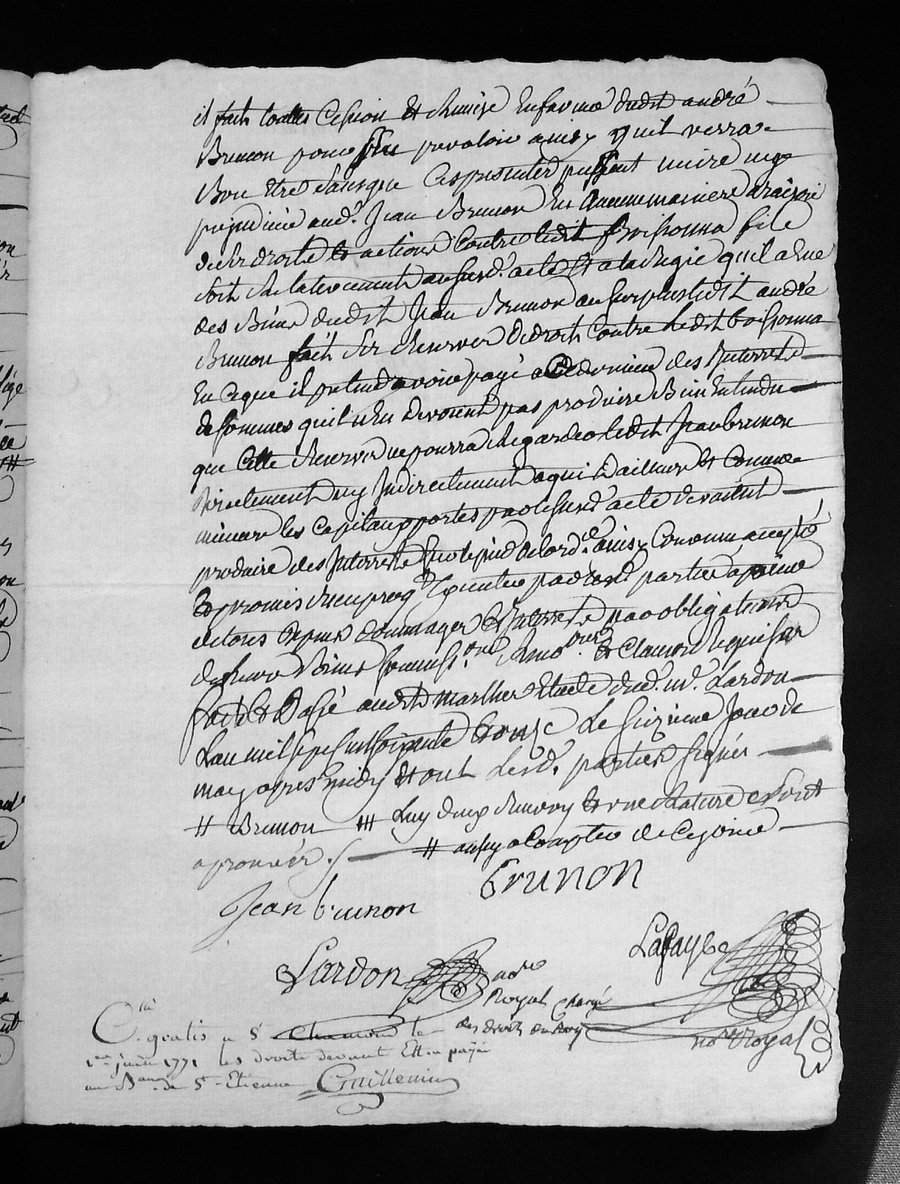 il fait touttes cession et remise en faveur dudit andré
Brunon pour sen prevaloir ainsy quil verra
Bon etre sans que ces presentes puissent nuire ny
prejudicier aud. Jean Brunon en aucune maniere a raison
de ses droits et actions contre ledit Boissonna fils
soit relativement au susd. acte et a la regie quil a eue
des Biens dudit Jean Brunon au surplus ledit andré
Brunon fait ses reserves de droit contre ledit boissonna
en ce que il pretend avoir payé a ce dernier des Interrets
de sommes quil n'en devoient pas produire Bien entendu
que cette reserve ne pourra regarder ledit Jean brunon
directement ny Indirectement a qui d'ailleurs et comme
mineur les capitaux portes par le susd. acte devoient
produire des Interrets sur le pied de lord.ce ainsy convenu accepté
et promis executer par lesd. parties a peine
de tous depens dommages et Interrets par obligations
de leurs Biens soumiss.ons renon.ons et clauses requises
fait et Passé audit Marlhes Etude dud. m. Lardon
Lan mil sept cent soixante et onze Le seizieme jour de
may apres midy et ont lesd. parties signés
# Brunon ### Les deux renvoy et une rature sont
aprouvés ./. # ainsy a compter de ce jour
Brunon
Jean brunon
Lardon no.re
Royal
Lafaybe
no.re Royal
chargé
des droits du Roy
C.llé gratis a S.t Chamond le
1er juin 1771 les droits devant Etre payé
au Bau de S.t Etienne Guillemin